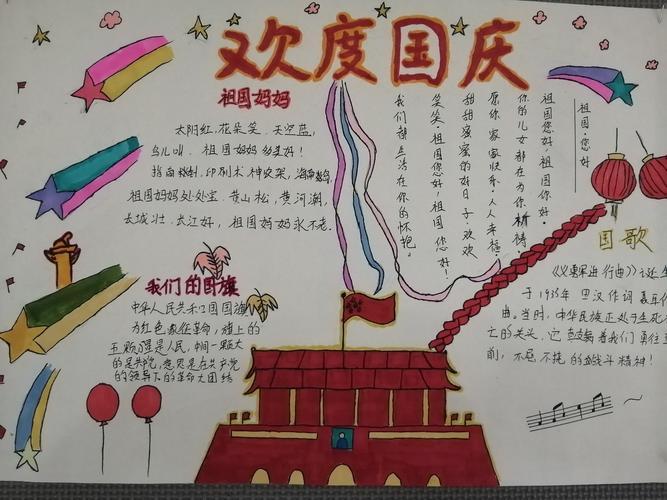 欢度国庆
祖国妈妈
太阳红,花朵笑,天空蓝,
鸟儿叫,祖国妈妈多美好!
指南针,印刷术,神
祖国妈妈处处宝。黄山松,黄河潮,
长城壮,长江好,祖国妈妈永不老。
我们的国旗
中华人民共和国国旗
为红色,象征革命,旗上的
五颗星是人民,中间一颗大
的是共产党,意思是在共产党
的领导下的革命大团结
祖国,您好
祖国您好,祖国你好。
你的儿女都在为你祈祷。
愿你家家快乐,人人幸福。
甜甜蜜蜜的好日子,欢欢
笑笑。祖国您好,祖国您好!
我们都生活在你的怀抱。
国歌
《义勇军进行曲》
于1935年 田汉作词 聂耳作
曲。当时,中华民族正处于生死存
亡的关头,它鼓舞着我们勇往直
前,不屈不挠的战斗精神!